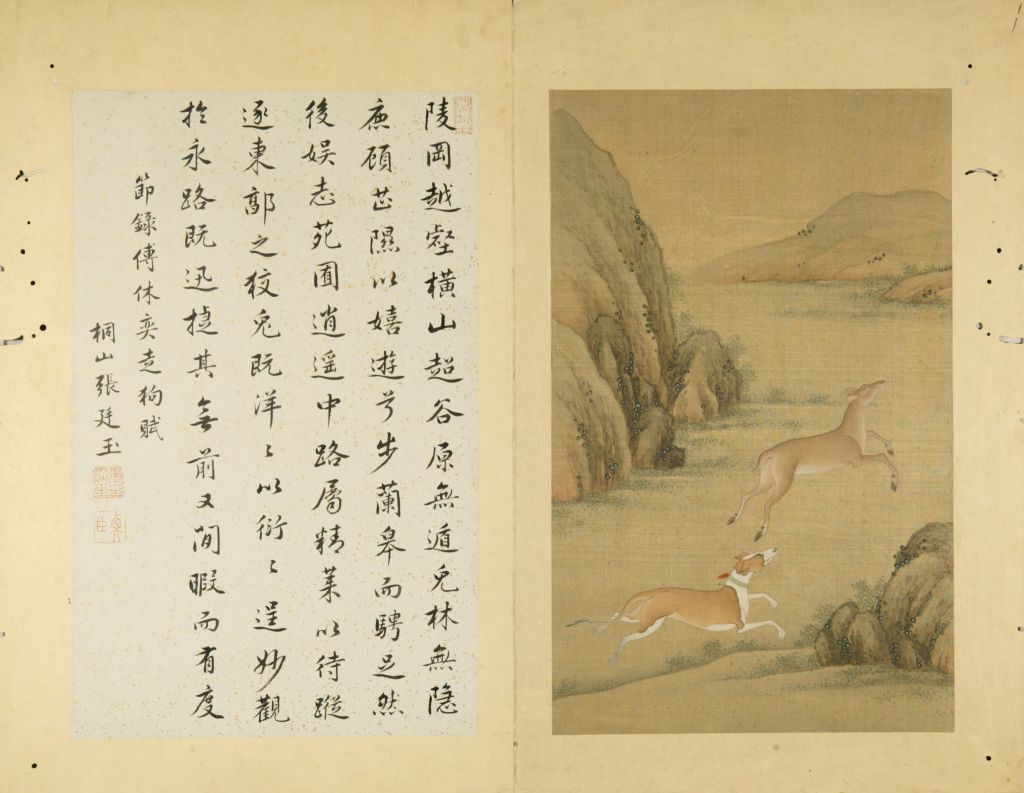 陵岡越壑橫山超谷原無遁兔林無隱
麃顧芷隰以嬉遊兮步蘭皋而騁足然
後娛志苑囿逍遥中路屬精萊以待蹤
逐東郭之狡兔既洋〻以衍〻逞妙觀
於永路既迅捷其無前又閒暇而有度
節錄傅休奕走狗賦
桐山張廷玉